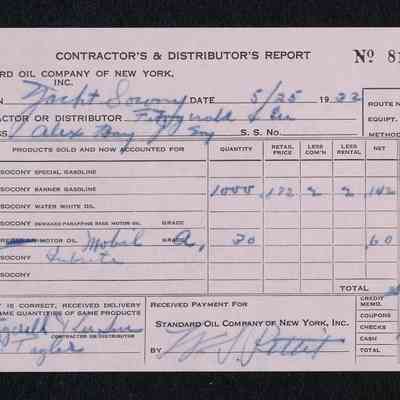 CONTRACTOR'S & DISTRIBUTOR'S REPORT No 81
RD OIL COMPANY OF NEW YORK,
INC.
N Yacht Socony DATE 5/25 1933
ACTOR OR DISTRIBUTOR Fitzgerald & Lee
SS Alex Bay S. S. No.
ROUTE NO
EQUIPT.
METHOD
PRODUCTS SOLD AND NOW ACCOUNTED FOR QUANTITY RETAIL PRICE LESS COM'N LESS RENTAL NET
SOCONY SPECIAL GASOLINE
SOCONY BANNER GASOLINE 1000 .182 2 2 .142
SOCONY WATER WHITE OIL
SOCONY DEWAXED PARAFFINE BASE MOTOR OIL GRADE
MOTOR OIL Mobil GRADE A, 30 .60
SOCONY
SOCONY
TOTAL
Y IS CORRECT, RECEIVED DELIVERY
AME QUANTITIES OF SAME PRODUCTS
CONTRACTOR OR DISTRIBUTOR
RECEIVED PAYMENT FOR
STANDARD OIL COMPANY OF NEW YORK, INC.
BY
CREDIT MEMO.
COUPONS
CHECKS
CASH
TOTAL